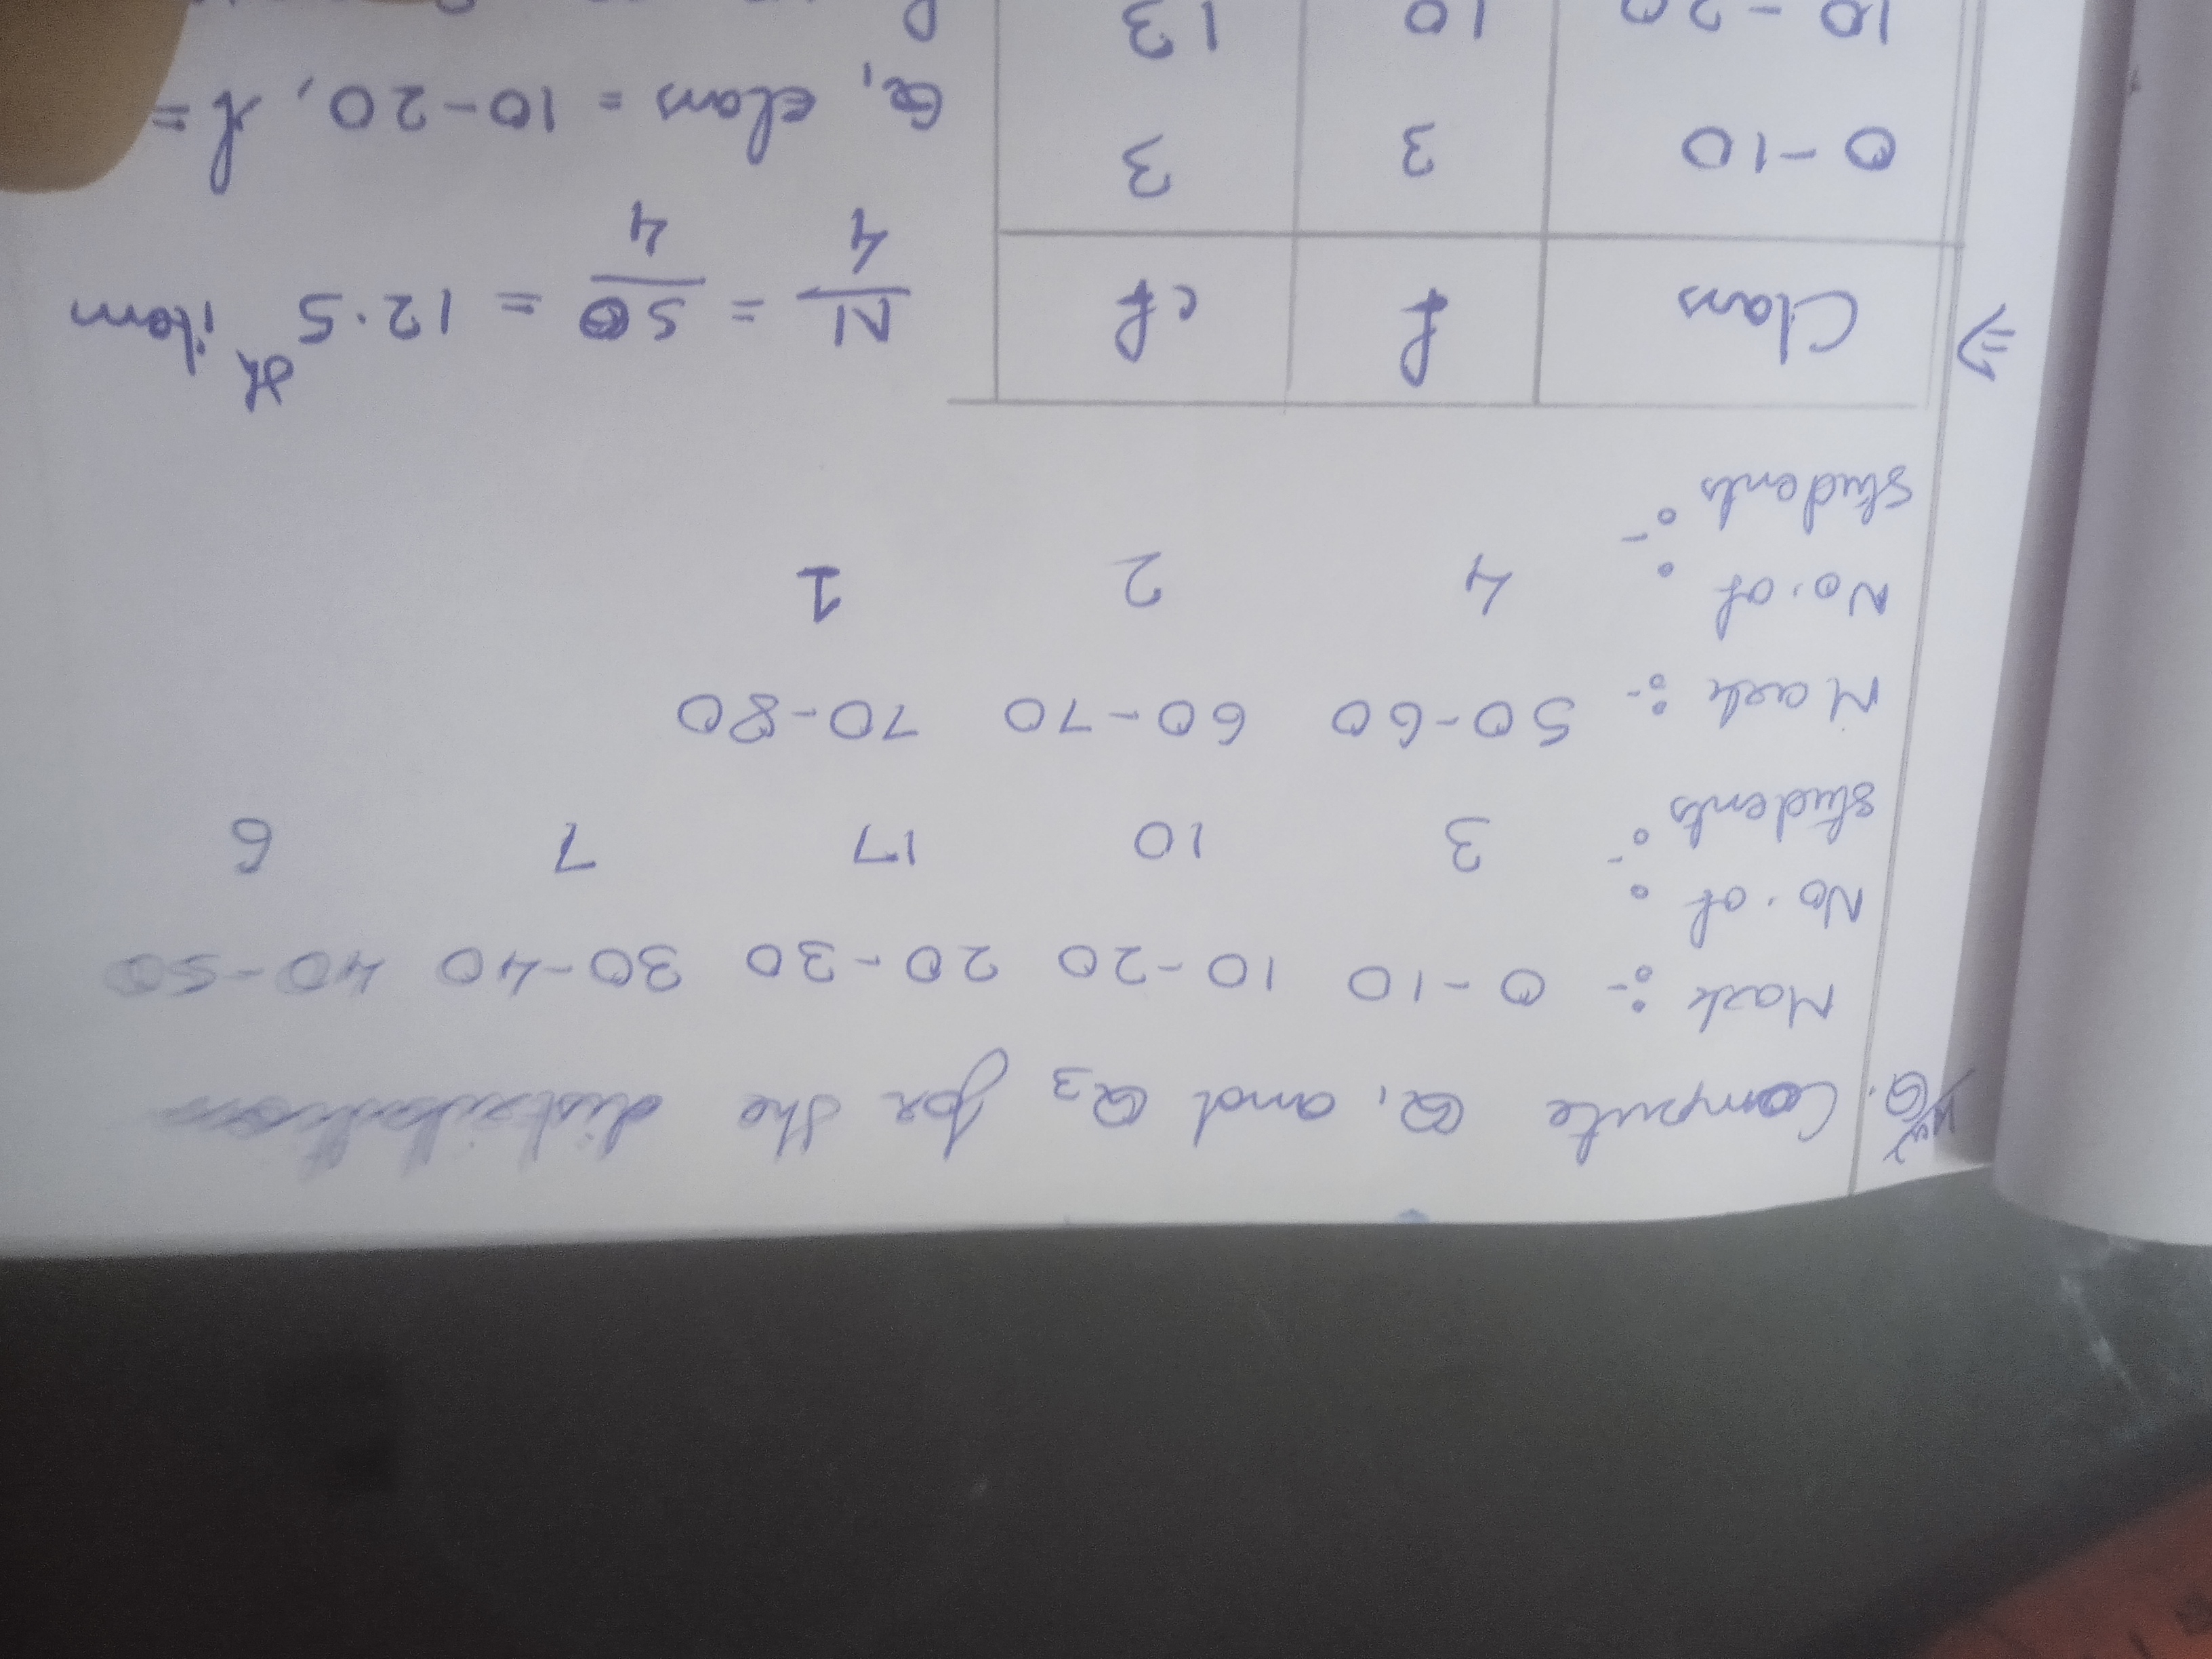 Q. Compute Q1 and Q3 for the distribution
Mark :- 0-10 10-20 20-30 30-40 40-50
No. of
students :- 3 10 17 7 6
Mark :- 50-60 60-70 70-80
No. of
students :- 4 2 1
⇒ Class f cf N/4 = 50/4 = 12.5th item
0-10 3 3 Q1 class = 10-20, l =
10-20 10 13